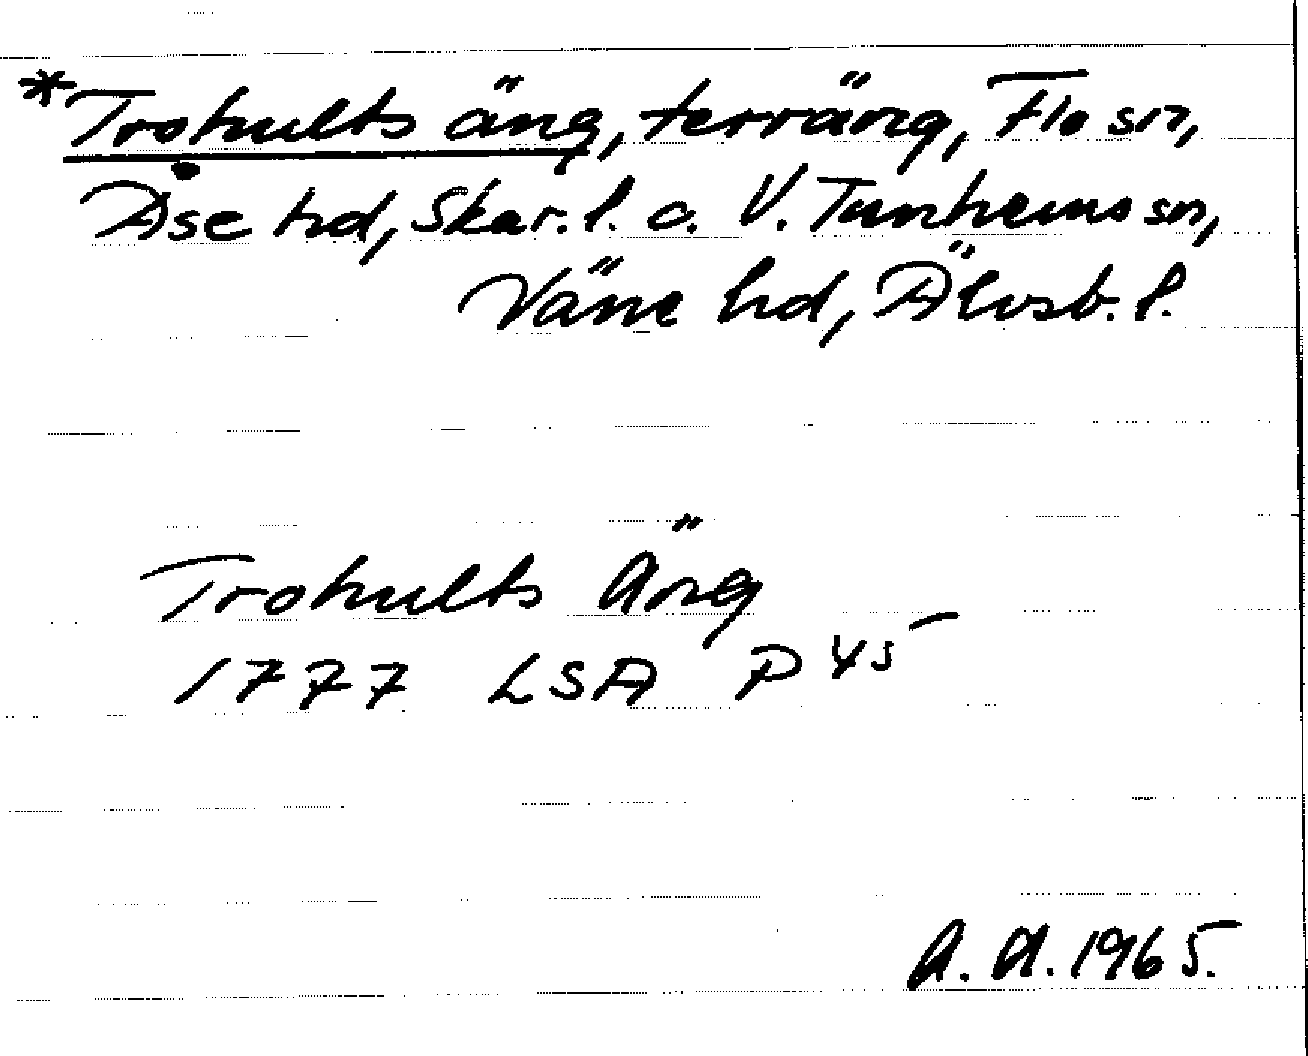 *Trohults äng, terräng, Flo sn,
Åse hd, Skar. l. o. V. Tunhems sn,
Väne hd, Älvsb. l.
Trohults Äng
1777 LSA P 45
A. A. 1965.